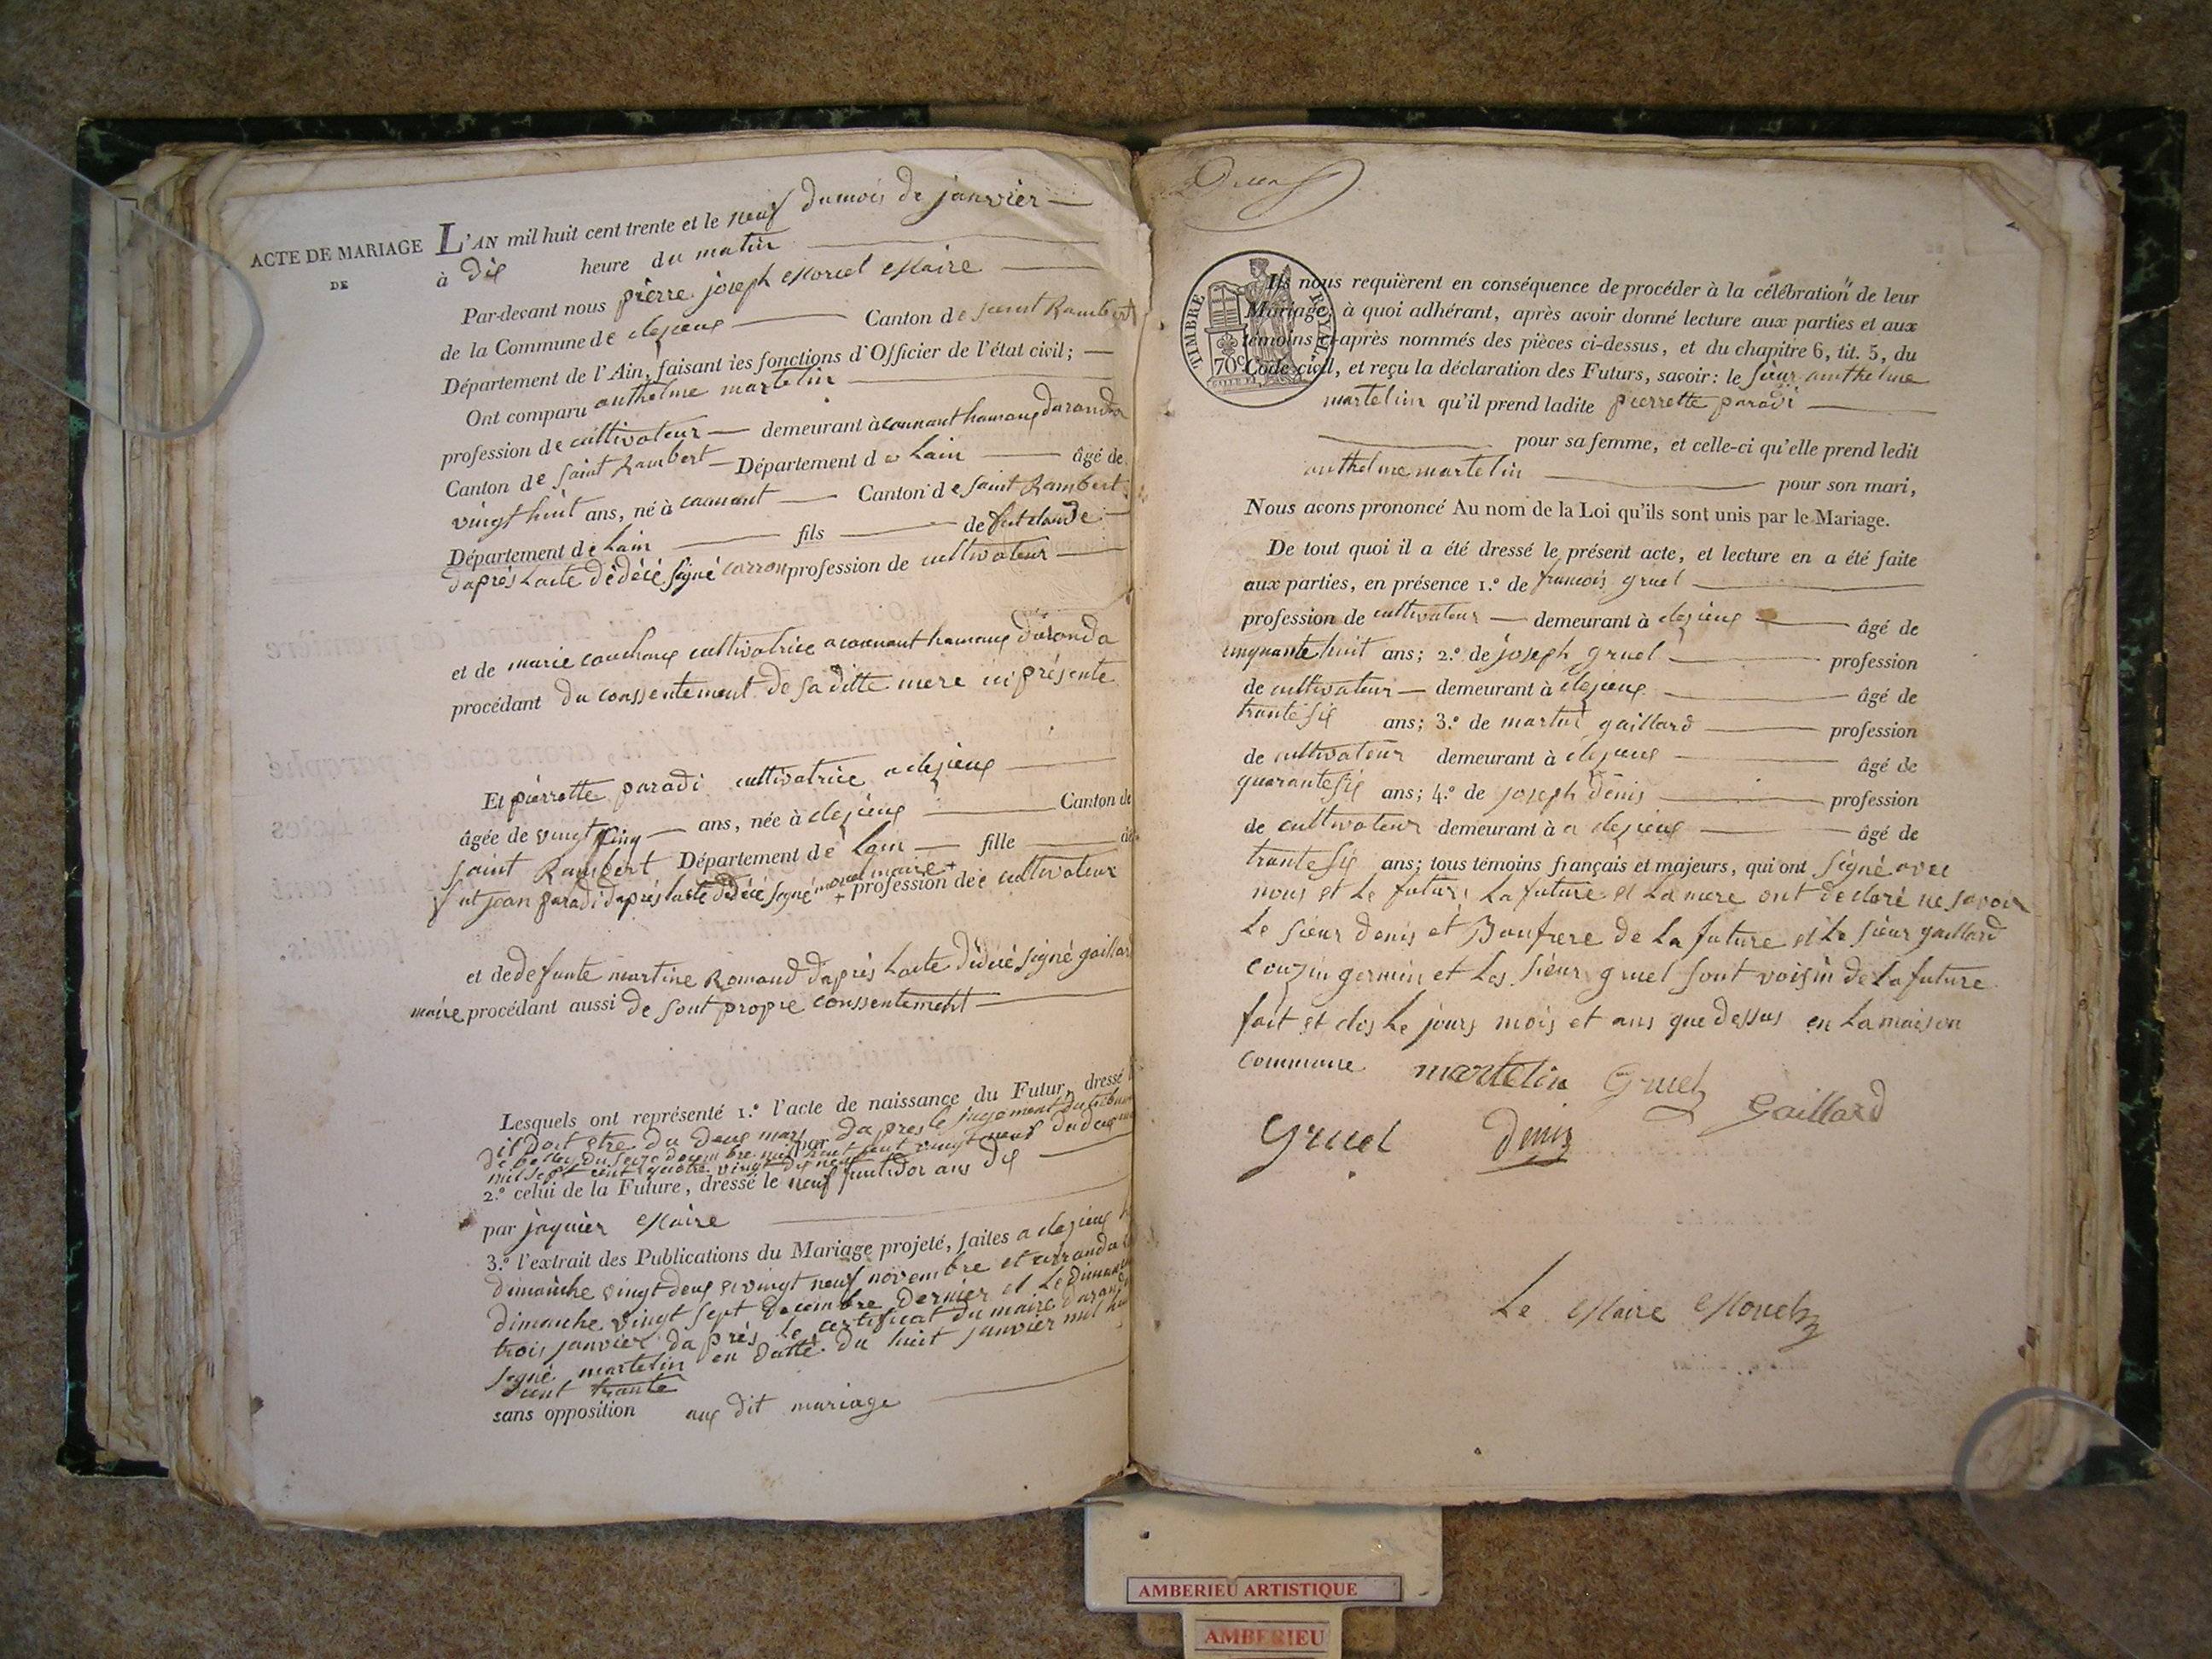 ACTE DE MARIAGE
DE
L'AN mil huit cent trente et le neuf du mois de janvier
à dix heure du matin
Par-devant nous pierre joseph Morel Maire
de la Commune de clezieux Canton de saint Rambert
Département de l'Ain, faisant les fonctions d'Officier de l'état civil;
Ont comparu anthelme martelin
profession de cultivateur demeurant à connant hamaux daranda
Canton de saint Rambert Département de Lain âgé de
vingt huit ans, né à connant Canton de saint Rambert
Département de Lain fils de fut claude
daprès Lacte dédécé signé carron profession de cultivateur
et de marie couchoux cultivatrice a connant hamaux daranda
procédant du conssentement de sa ditte mere ici présente
Et pierrette paradi cultivatrice a clezieux
âgée de vingt cinq ans, née à clezieux Canton de
saint Rambert Département de Lain fille de
fut jean paradi daprés lacte dédécé signé morel maire + + profession de cultivateur
et de defunte martine Romand daprès Lacte dédécé signé gaillard
maire procédant aussi de sont propre conssentement
Lesquels ont représenté 1.º l'acte de naissance du Futur, dressé
il doit etre du deux mars par daprès le jugement du tribunal
de belley du seize decembre mil huit cent vingt neuf du deux mars
mil sept cent quatre vingt dix neuf
2.º celui de la Future, dressé le neuf fructidor ans dix
par jaquier Maire
3.º l'extrait des Publications du Mariage projeté, faites a clezieux le
dimanche vingt deux et vingt neuf novembre et arranda le
dimanche vingt sept decembre dernier et le dimanche
trois janvier daprés le certificat du maire daranda
signé martelin en datte du huit janvier mil huit
cent trante
sans opposition aux dit mariage
TIMBRE ROYAL
70c
Ils nous requièrent en conséquence de procéder à la célébration de leur
Mariage, à quoi adhérant, après avoir donné lecture aux parties et aux
témoins ci-après nommés des pièces ci-dessus, et du chapitre 6, tit. 5, du
Code civil, et reçu la déclaration des Futurs, savoir: le sieur anthelme
martelin qu'il prend ladite pierrette paradi
pour sa femme, et celle-ci qu'elle prend ledit
anthelme martelin pour son mari,
Nous avons prononcé Au nom de la Loi qu'ils sont unis par le Mariage.
De tout quoi il a été dressé le présent acte, et lecture en a été faite
aux parties, en présence 1.º de francois gruel
profession de cultivateur demeurant à clezieux âgé de
cinquante huit ans; 2.º de joseph gruel profession
de cultivateur demeurant à clezieux âgé de
trante six ans; 3.º de martin gaillard profession
de cultivateur demeurant à clezieux âgé de
quarante six ans; 4.º de joseph denis profession
de cultivateur demeurant à a clezieux âgé de
trante six ans; tous témoins français et majeurs, qui ont signé avec
nous et le futur, La future et La mere ont declaré ne savoir
Le sieur denis et Baufrere de La future et Le sieur gaillard
couzin germin et Les sieur gruel sont voisin de La future
fait et clos Le jours mois et ans que dessus en La maison
commune martelin Gruel
Gaillard
Gruel denis
Le Maire Morel
AMBERIEU ARTISTIQUE
AMBERIEU